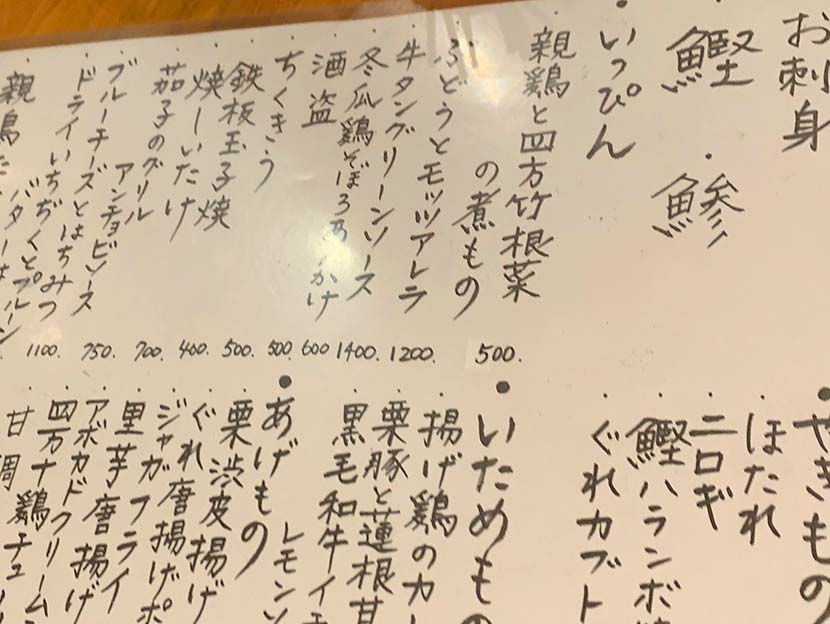 お刺身
・鰹
・鰺
・いっぴん
・親鶏と四方竹根菜
の煮もの 500.
・ぶどうとモッツアレラ 1200.
・牛タングリーンソース 1400.
・冬瓜鶏そぼろあんかけ 600
・酒盗 500.
・ちくきう 500.
・鉄板玉子焼 400.
・焼しいたけ 700.
・茄子のグリル
アンチョビソース 750.
・ブルーチーズとはちみつ 1100.
・ドライいちぢくとプルーン
バター
親鳥
・やきもの
・ほたれ
・ニロギ
・鰹ハランボ
・ぐれカブト
・いためもの
・揚げ鶏の
・栗豚と蓮根甘
・黒毛和牛イ
レモンソ
・あげもの
・栗渋皮揚げ
・ぐれ唐揚げポ
・ジャガフライ
・里芋唐揚げ
・アボカドクリーム
・四万十鶏チュ
甘